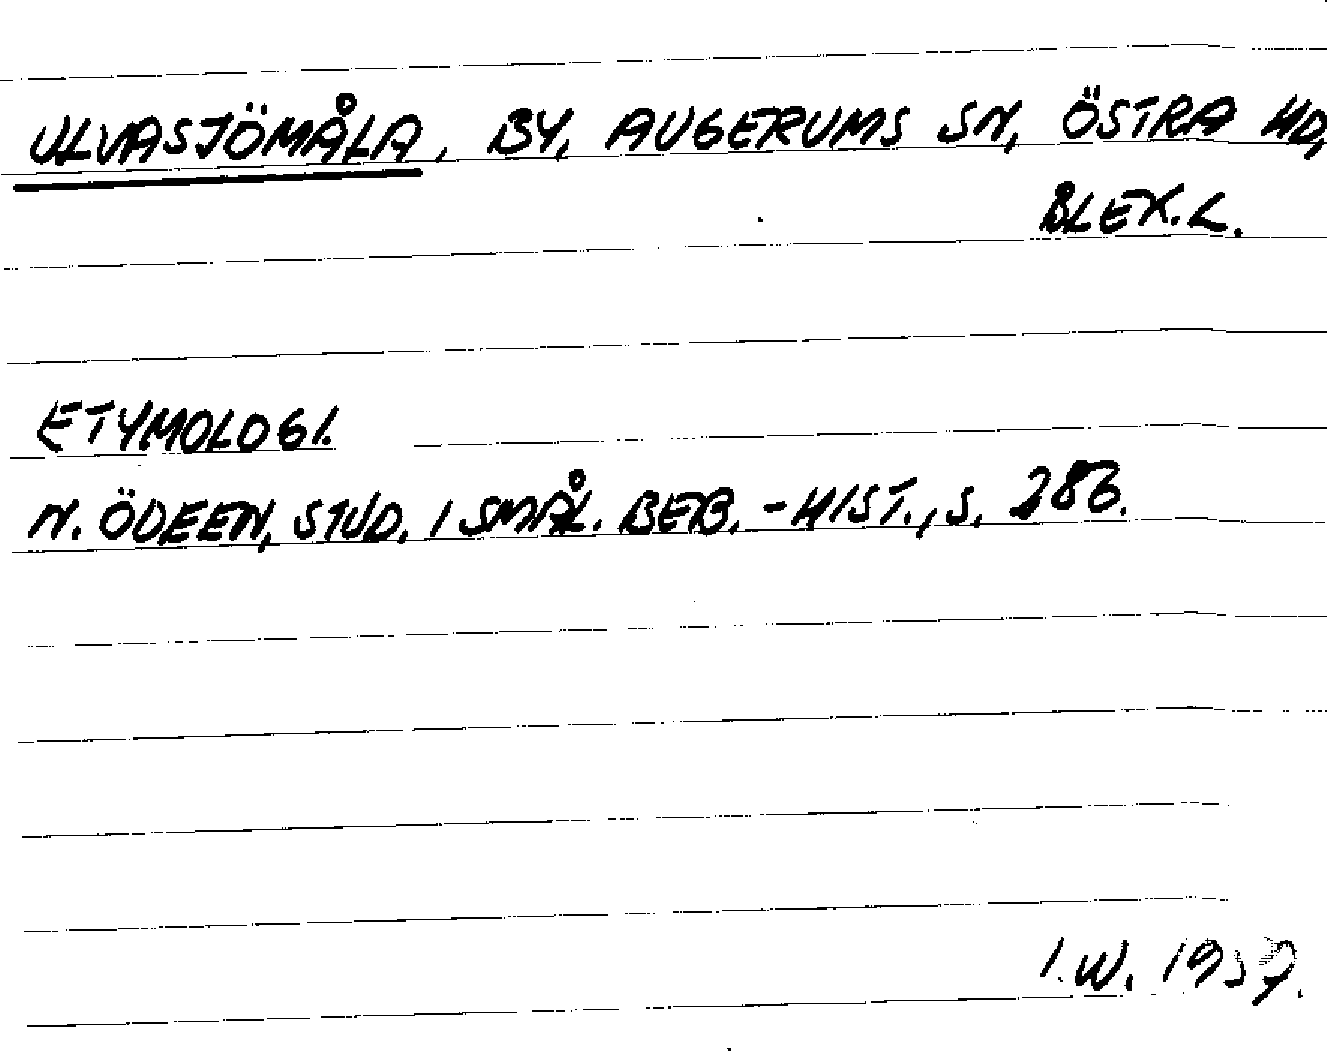 ULVASJÖMÅLA, BY, AUGERUMS SN, ÖSTRA HD,
BLEK.L.
ETYMOLOGI.
N. ÖDEEN, STUD. I SMÅL. BEB.-HIST., S. 286.
I.W. 1957.